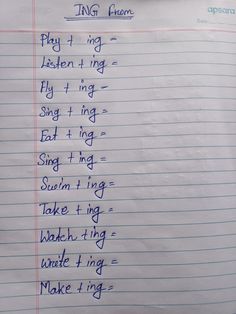 ING from
apsara
Date
Play + ing =
Listen + ing =
Fly + ing =
Sing + ing =
Eat + ing =
Sing + ing =
Swim + ing =
Take + ing =
Watch + ing =
Write + ing =
Make + ing =